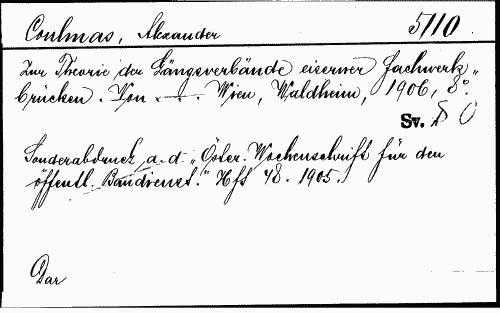 Coulmas, Alexander 5110.
Zur Theorie der Längsverbände eiserner Fachwerk„
brücken. Von . —— . Wien, Waldheim, 1906, 8°.
Sv.
Sonderabdruck a. d. „Öster. Wochenschrift für den
öffentl. Baudienst." Hft 48. 1905.
Dar